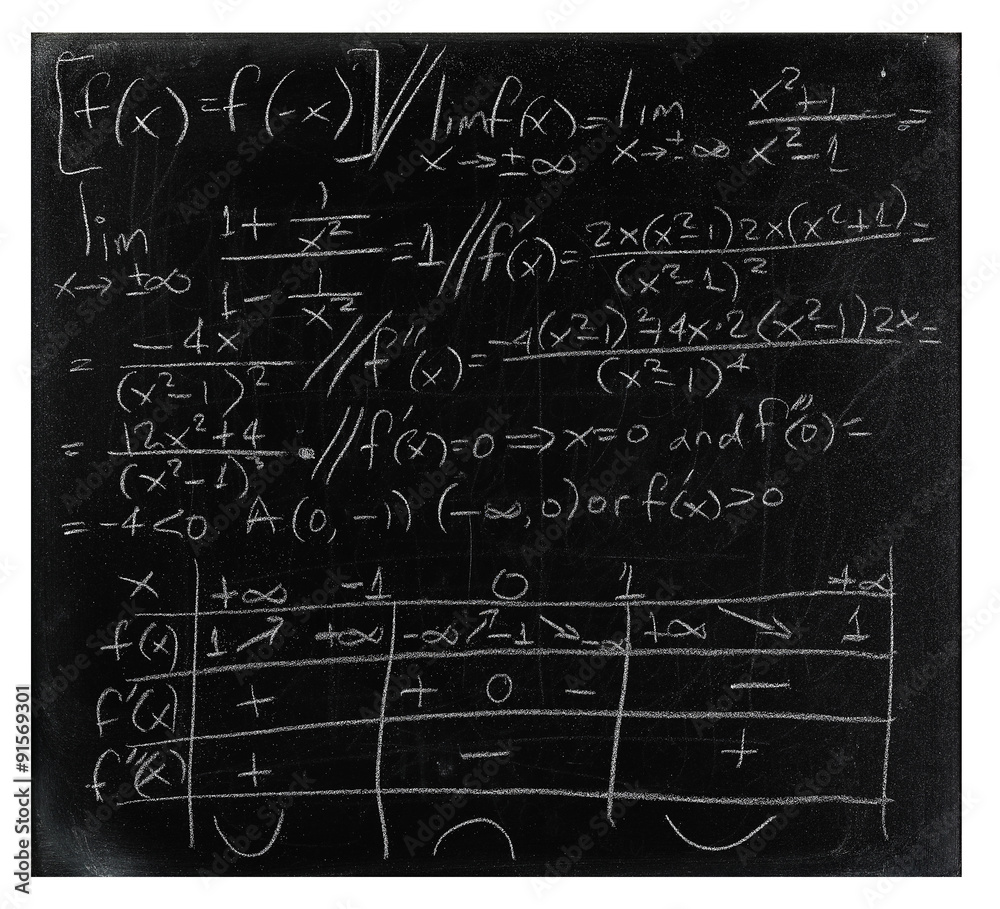 [f(x)=f(-x)] // lim x→±∞ f(x) = lim x→±∞ (x²+1)/(x²-1) =
lim x→±∞ (1+1/x²)/(1-1/x²) = 1 // f'(x) = (2x(x²-1)2x(x²+1))/(x²-1)² =
= (-4x)/(x²-1)² // f''(x) = (-4(x²-1)²+4x·2(x²-1)2x)/(x²-1)⁴ =
= (12x²+4)/(x²-1)³ . // f'(x)=0 ⇒ x=0 and f''(0)=
= -4<0 A(0, -1) (-∞,0) or f'(x)>0
x +∞ -1 0 1 +∞
f(x) 1 ↗ +∞ -∞ ↗ -1 ↘ -∞ +∞ ↘ 1
f'(x) + + 0 - -
f''(x) + - +
Adobe Stock | #91569301